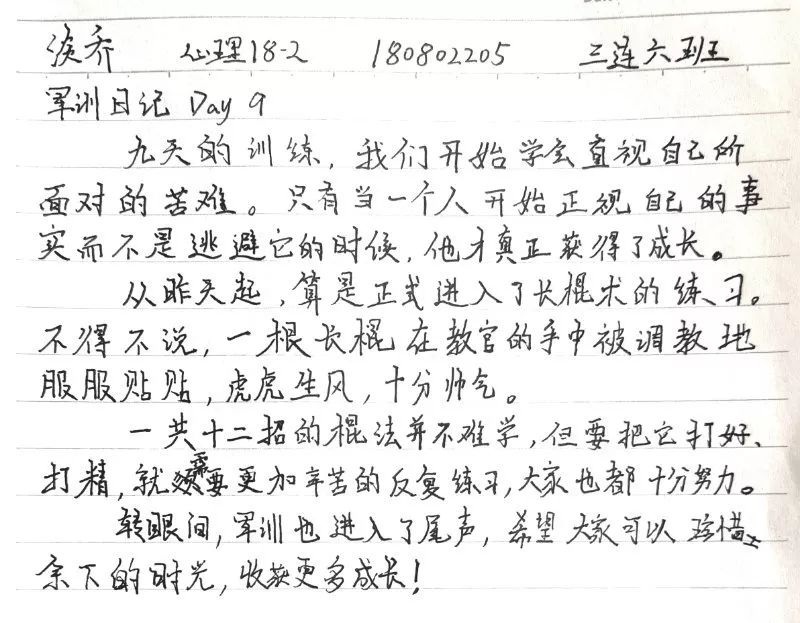 侯乔 心理18-2 180802205 三连六班
军训日记 Day 9
九天的训练,我们开始学会直视自己所
面对的苦难。只有当一个人开始正视自己的事
实而不是逃避它的时候,他才真正获得了成长。
从昨天起,算是正式进入了长棍术的练习。
不得不说,一根长棍在教官的手中被调教地
服服贴贴,虎虎生风,十分帅气。
一共十二招的棍法并不难学,但要把它打好、
打精,就需要更加辛苦的反复练习,大家也都十分努力。
转眼间,军训也进入了尾声,希望大家可以珍惜
余下的时光,收获更多成长!